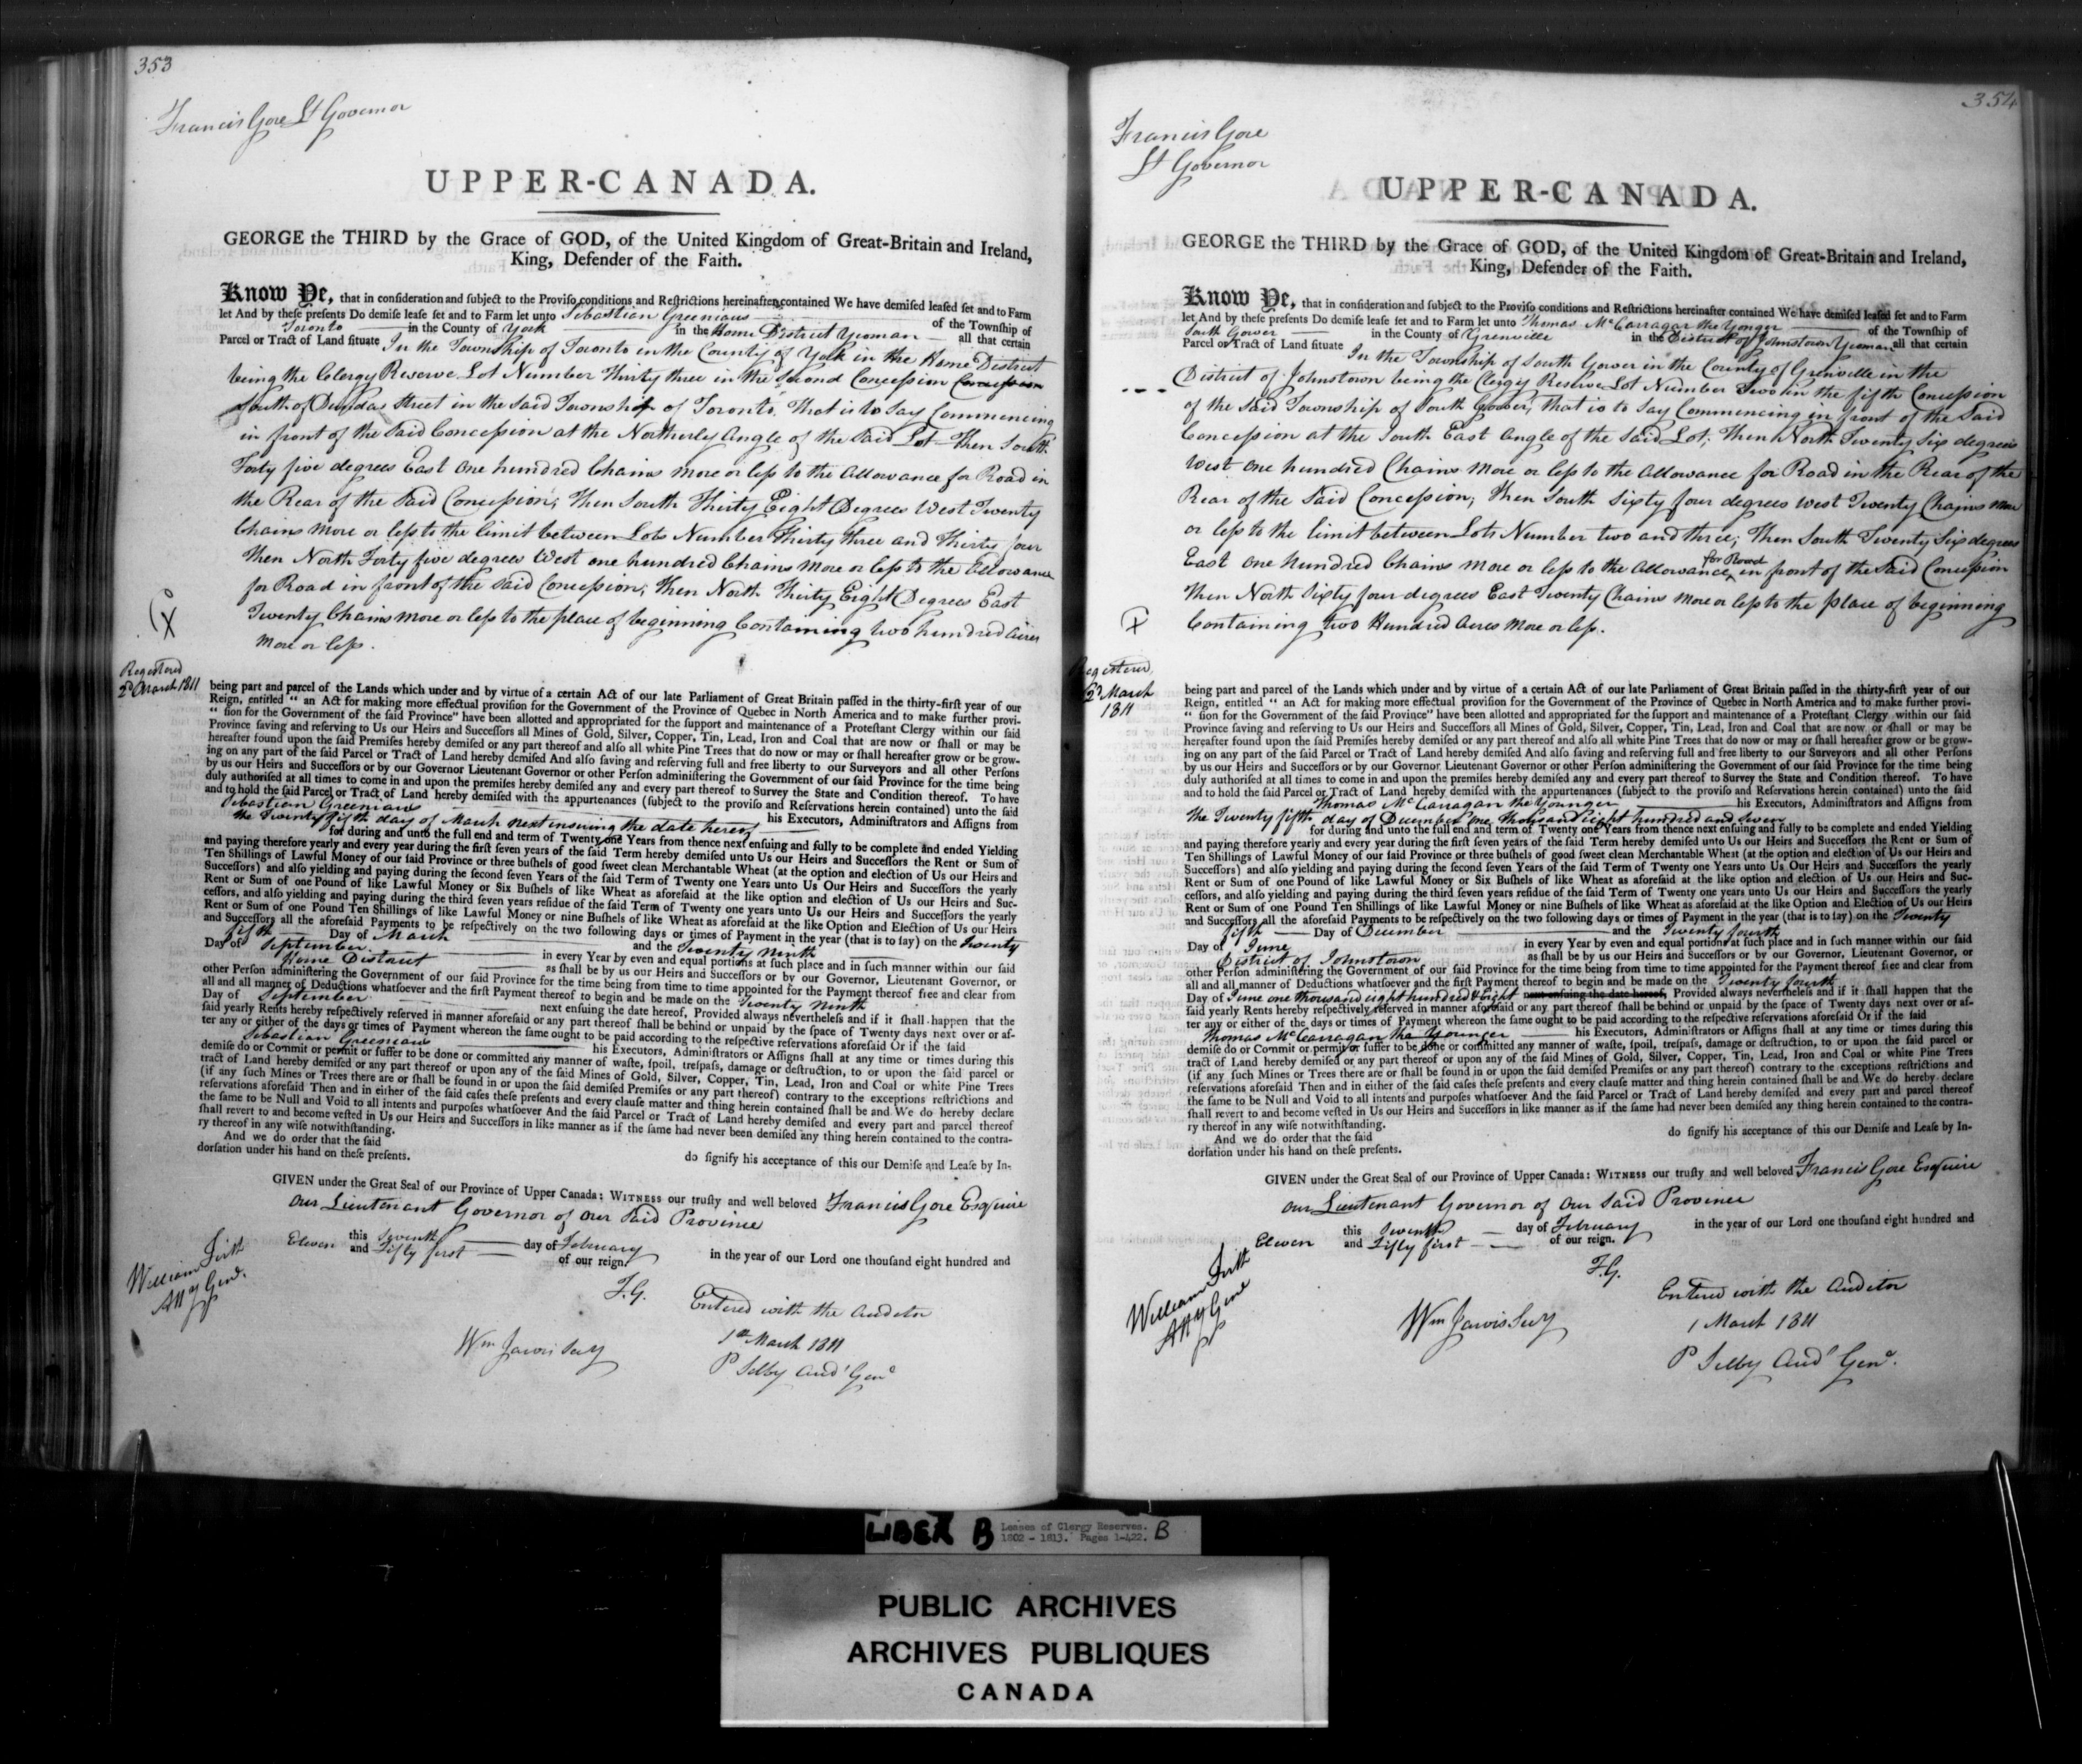 353
Francis Gore Lt Governor
UPPER-CANADA.
GEORGE the THIRD by the Grace of GOD, of the United Kingdom of Great-Britain and Ireland,
King, Defender of the Faith.
Know Ye, that in conſideration and ſubject to the Proviſo conditions and Reſtrictions hereinafter contained We have demiſed leaſed ſet and to Farm
let And by theſe preſents Do demiſe leaſe ſet and to Farm let unto Sebastian Greenians of the Townſhip of
Toronto in the County of York in the Home District Yeoman all that certain
Parcel or Tract of Land ſituate In the Township of Toronto in the County of York in the Home District
being the Clergy Reserve Lot Number Thirty three in the Second Concession Concession
South of Dundas Street in the said Township of Toronto, That is to say Commencing
in front of the said Concession at the Northerly Angle of the said Lot Then South
Forty five degrees East One hundred Chains more or less to the allowance for Road in
the Rear of the said Concession; Then South Thirty Eight Degrees West Twenty
Chains more or less to the limit between Lots Number Thirty three and Thirty four
Then North Forty five degrees West one hundred Chains more or less to the Allowance
for Road in front of the said Concession; Then North Thirty Eight Degrees East
Twenty Chains more or less to the place of beginning Containing two hundred Acres
More or less.
Registered
2d March 1811
being part and parcel of the Lands which under and by virtue of a certain Act of our late Parliament of Great Britain paſſed in the thirty-firſt year of our
Reign, entitled “ an Act for making more effectual proviſion for the Government of the Province of Quebec in North America and to make further provi-
“ ſion for the Government of the ſaid Province” have been allotted and appropriated for the ſupport and maintenance of a Proteſtant Clergy within our ſaid
Province ſaving and reſerving to Us our Heirs and Succeſſors all Mines of Gold, Silver, Copper, Tin, Lead, Iron and Coal that are now or ſhall or may be
hereafter found upon the ſaid Premiſes hereby demiſed or any part thereof and alſo all white Pine Trees that do now or may or ſhall hereafter grow or be grow-
ing on any part of the ſaid Parcel or Tract of Land hereby demiſed And alſo ſaving and reſerving full and free liberty to our Surveyors and all other Perſons
by us our Heirs and Succeſſors or by our Governor Lieutenant Governor or other Perſon adminiſtering the Government of our ſaid Province for the time being
duly authoriſed at all times to come in and upon the premiſes hereby demiſed any and every part thereof to Survey the State and Condition thereof. To have
and to hold the ſaid Parcel or Tract of Land hereby demiſed with the appurtenances (ſubject to the proviſo and Reſervations herein contained) unto the ſaid
Sebastian Greenians his Executors, Adminiſtrators and Aſſigns from
the Twenty fifth day of March next ensuing the date hereof
for during and unto the full end and term of Twenty one Years from thence next enſuing and fully to be complete and ended Yielding
and paying therefore yearly and every year during the firſt ſeven years of the ſaid Term hereby demiſed unto Us our Heirs and Succeſſors the Rent or Sum of
Ten Shillings of Lawful Money of our ſaid Province or three buſhels of good ſweet clean Merchantable Wheat (at the option and election of Us our Heirs and
Succeſſors) and alſo yielding and paying during the ſecond ſeven Years of the ſaid Term of Twenty one Years unto Us Our Heirs and Succeſſors the yearly
Rent or Sum of one Pound of like Lawful Money or Six Buſhels of like Wheat as aforeſaid at the like option and election of Us our Heirs and Suc-
ceſſors, and alſo yielding and paying during the third ſeven years reſidue of the ſaid Term of Twenty one years unto Us our Heirs and Succeſſors the yearly
Rent or Sum of one Pound Ten Shillings of like Lawful Money or nine Buſhels of like Wheat as aforeſaid at the like Option and Election of Us our Heirs
and Succeſſors all the aforeſaid Payments to be reſpectively on the two following days or times of Payment in the year (that is to ſay) on the Twenty
fifth Day of March and the Twenty ninth
Day of September in every Year by even and equal portions at ſuch place and in ſuch manner within our ſaid
Home District as ſhall be by us our Heirs and Succeſſors or by our Governor, Lieutenant Governor, or
other Perſon adminiſtering the Government of our ſaid Province for the time being from time to time appointed for the Payment thereof free and clear from
all and all manner of Deductions whatſoever and the firſt Payment thereof to begin and be made on the Twenty ninth
Day of September next enſuing the date hereof, Provided always nevertheleſs and if it ſhall happen that the
ſaid yearly Rents hereby reſpectively reſerved in manner aforeſaid or any part thereof ſhall be behind or unpaid by the ſpace of Twenty days next over or af-
ter any or either of the days or times of Payment whereon the ſame ought to be paid according to the reſpective reſervations aforeſaid Or if the ſaid
Sebastian Greenians his Executors, Adminiſtrators or Aſſigns ſhall at any time or times during this
demiſe do or Commit or permit or ſuffer to be done or committed any manner of waſte, ſpoil, treſpaſs, damage or deſtruction, to or upon the ſaid parcel or
tract of Land hereby demiſed or any part thereof or upon any of the ſaid Mines of Gold, Silver, Copper, Tin, Lead, Iron and Coal or white Pine Trees
(if any ſuch Mines or Trees there are or ſhall be found in or upon the ſaid demiſed Premiſes or any part thereof) contrary to the exceptions reſtrictions and
reſervations aforeſaid Then and in either of the ſaid caſes theſe preſents and every clauſe matter and thing herein contained ſhall be and We do hereby declare
the ſame to be Null and Void to all intents and purpoſes whatſoever And the ſaid Parcel or Tract of Land hereby demiſed and every part and parcel thereof
ſhall revert to and become veſted in Us our Heirs and Succeſſors in like manner as if the ſame had never been demiſed any thing herein contained to the contra-
ry thereof in any wiſe notwithſtanding.
And we do order that the ſaid do ſignify his acceptance of this our Demiſe and Leaſe by In-
dorſation under his hand on theſe preſents.
GIVEN under the Great Seal of our Province of Upper Canada: WITNESS our truſty and well beloved Francis Gore Esquire
our Lieutenant Governor of our said Province
this Seventh day of February in the year of our Lord one thouſand eight hundred and
Eleven and Fifty first of our reign.
William Firth
Atty Genl.
F.G.
Entered with the Auditor
1st March 1811
P Selby Audr Genl
Wm Jarvis Secy
354
Francis Gore
Lt Governor
UPPER-CANADA.
GEORGE the THIRD by the Grace of GOD, of the United Kingdom of Great-Britain and Ireland,
King, Defender of the Faith.
Know Ye, that in conſideration and ſubject to the Proviſo conditions and Reſtrictions hereinafter contained We have demiſed leaſed ſet and to Farm
let And by theſe preſents Do demiſe leaſe ſet and to Farm let unto Thomas McCarragan the Yonger of the Townſhip of
South Gower in the County of Grenville in the District of Johnstown Yeoman all that certain
Parcel or Tract of Land ſituate In the Township of South Gower in the County of Grenville in the
District of Johnstown being the Clergy Reserve Lot Number Two in the fifth Concession
of the said Township of South Gower, that is to say Commencing in front of the said
Concession at the South East Angle of the said Lot; Then North Twenty Six degrees
West One hundred Chains more or less to the allowance for Road in the Rear of the
Rear of the said Concession; Then South Sixty four degrees West Twenty Chains more
or less to the limit between Lots Number two and three; Then South Twenty Six degrees
East One hundred Chains more or less to the allowance for Road in front of the said Concession
Then North Sixty four degrees East Twenty Chains more or less to the place of beginning
Containing two Hundred Acres more or less.
Registered
2d March
1811
being part and parcel of the Lands which under and by virtue of a certain Act of our late Parliament of Great Britain paſſed in the thirty-firſt year of our
Reign, entitled “ an Act for making more effectual proviſion for the Government of the Province of Quebec in North America and to make further provi-
“ ſion for the Government of the ſaid Province” have been allotted and appropriated for the ſupport and maintenance of a Proteſtant Clergy within our ſaid
Province ſaving and reſerving to Us our Heirs and Succeſſors all Mines of Gold, Silver, Copper, Tin, Lead, Iron and Coal that are now or ſhall or may be
hereafter found upon the ſaid Premiſes hereby demiſed or any part thereof and alſo all white Pine Trees that do now or may or ſhall hereafter grow or be grow-
ing on any part of the ſaid Parcel or Tract of Land hereby demiſed And alſo ſaving and reſerving full and free liberty to our Surveyors and all other Perſons
by us our Heirs and Succeſſors or by our Governor Lieutenant Governor or other Perſon adminiſtering the Government of our ſaid Province for the time being
duly authoriſed at all times to come in and upon the premiſes hereby demiſed any and every part thereof to Survey the State and Condition thereof. To have
and to hold the ſaid Parcel or Tract of Land hereby demiſed with the appurtenances (ſubject to the proviſo and Reſervations herein contained) unto the ſaid
Thomas McCarragan the Younger his Executors, Adminiſtrators and Aſſigns from
the Twenty fifth day of December one thousand eight hundred and seven
for during and unto the full end and term of Twenty one Years from thence next enſuing and fully to be complete and ended Yielding
and paying therefore yearly and every year during the firſt ſeven years of the ſaid Term hereby demiſed unto Us our Heirs and Succeſſors the Rent or Sum of
Ten Shillings of Lawful Money of our ſaid Province or three buſhels of good ſweet clean Merchantable Wheat (at the option and election of Us our Heirs and
Succeſſors) and alſo yielding and paying during the ſecond ſeven Years of the ſaid Term of Twenty one Years unto Us Our Heirs and Succeſſors the yearly
Rent or Sum of one Pound of like Lawful Money or Six Buſhels of like Wheat as aforeſaid at the like option and election of Us our Heirs and Suc-
ceſſors, and alſo yielding and paying during the third ſeven years reſidue of the ſaid Term of Twenty one years unto Us our Heirs and Succeſſors the yearly
Rent or Sum of one Pound Ten Shillings of like Lawful Money or nine Buſhels of like Wheat as aforeſaid at the like Option and Election of Us our Heirs
and Succeſſors all the aforeſaid Payments to be reſpectively on the two following days or times of Payment in the year (that is to ſay) on the Twenty
fifth Day of December and the Twenty fourth
Day of June in every Year by even and equal portions at ſuch place and in ſuch manner within our ſaid
District of Johnstown as ſhall be by us our Heirs and Succeſſors or by our Governor, Lieutenant Governor, or
other Perſon adminiſtering the Government of our ſaid Province for the time being from time to time appointed for the Payment thereof free and clear from
all and all manner of Deductions whatſoever and the firſt Payment thereof to begin and be made on the Twenty fourth
Day of June one thousand eight hundred & Eight next enſuing the date hereof, Provided always nevertheleſs and if it ſhall happen that the
ſaid yearly Rents hereby reſpectively reſerved in manner aforeſaid or any part thereof ſhall be behind or unpaid by the ſpace of Twenty days next over or af-
ter any or either of the days or times of Payment whereon the ſame ought to be paid according to the reſpective reſervations aforeſaid Or if the ſaid
Thomas McCarragan the Younger his Executors, Adminiſtrators or Aſſigns ſhall at any time or times during this
demiſe do or Commit or permit or ſuffer to be done or committed any manner of waſte, ſpoil, treſpaſs, damage or deſtruction, to or upon the ſaid parcel or
tract of Land hereby demiſed or any part thereof or upon any of the ſaid Mines of Gold, Silver, Copper, Tin, Lead, Iron and Coal or white Pine Trees
(if any ſuch Mines or Trees there are or ſhall be found in or upon the ſaid demiſed Premiſes or any part thereof) contrary to the exceptions reſtrictions and
reſervations aforeſaid Then and in either of the ſaid caſes theſe preſents and every clauſe matter and thing herein contained ſhall be and We do hereby declare
the ſame to be Null and Void to all intents and purpoſes whatſoever And the ſaid Parcel or Tract of Land hereby demiſed and every part and parcel thereof
ſhall revert to and become veſted in Us our Heirs and Succeſſors in like manner as if the ſame had never been demiſed any thing herein contained to the contra-
ry thereof in any wiſe notwithſtanding.
And we do order that the ſaid do ſignify his acceptance of this our Demiſe and Leaſe by In-
dorſation under his hand on theſe preſents.
GIVEN under the Great Seal of our Province of Upper Canada: WITNESS our truſty and well beloved Francis Gore Esquire
our Lieutenant Governor of our said Province
this Seventh day of February in the year of our Lord one thouſand eight hundred and
Eleven and Fifty first of our reign.
William Firth
Atty Genl
F.G.
Entered with the Auditor
1 March 1811
P Selby Audr Genl.
Wm Jarvis Secy
LIBER B Leases of Clergy Reserves. B
1802 - 1813. Pages 1-422.
PUBLIC ARCHIVES
ARCHIVES PUBLIQUES
CANADA